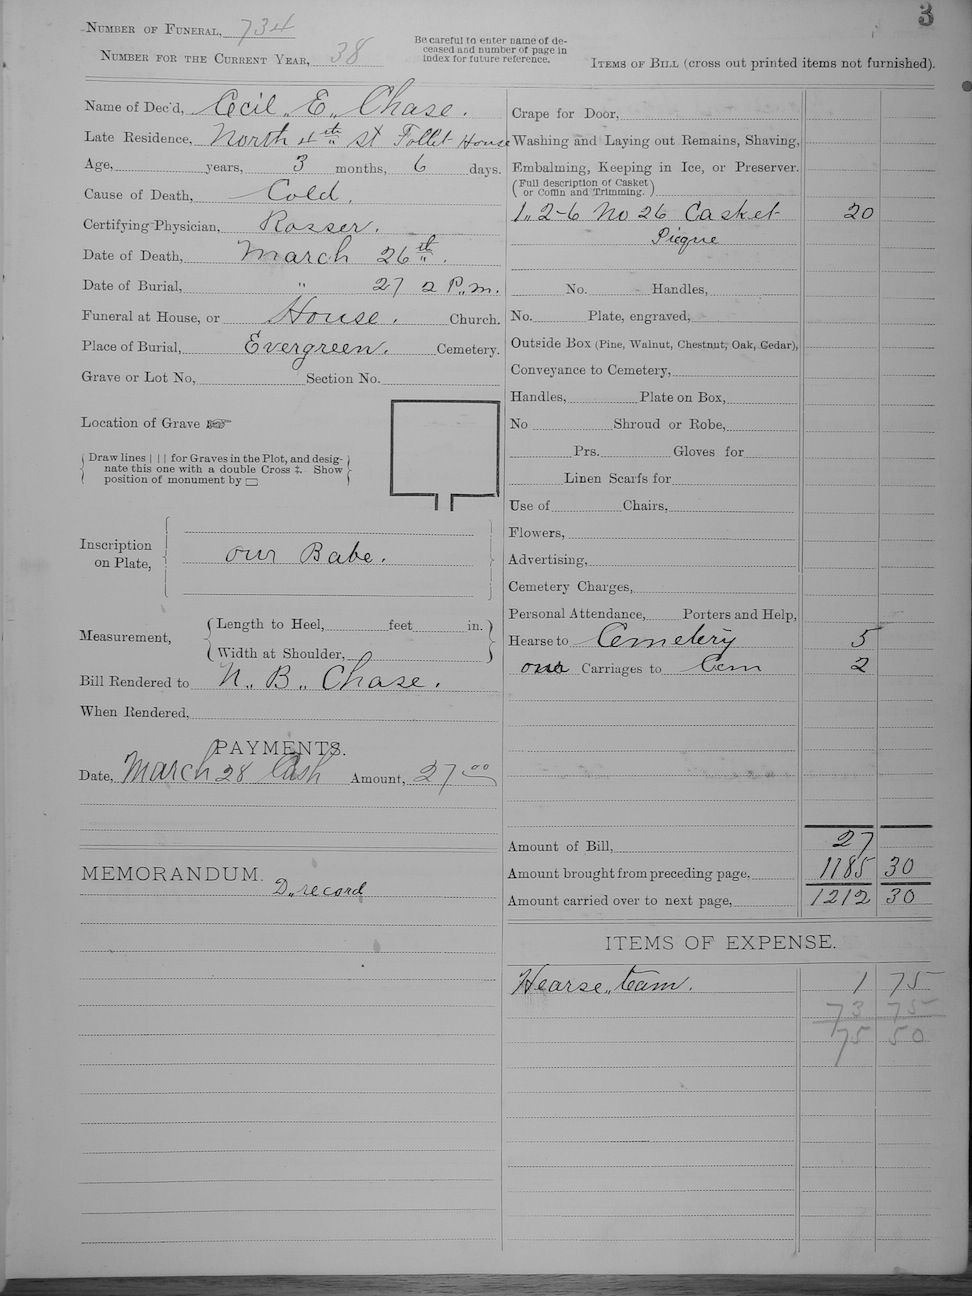 3
Number of Funeral, 734
Number for the Current Year, 38
Be careful to enter name of de-
ceased and number of page in
index for future reference.
Items of Bill (cross out printed items not furnished).
Name of Dec'd, Cecil „ E „ Chase .
Late Residence, North 4th St Follet House
Age, years, 3 months, 6 days.
Cause of Death, Cold .
Certifying Physician, Rosser .
Date of Death, March 26th .
Date of Burial, " 27 2 P.. m.
Funeral at House, or House . Church.
Place of Burial, Evergreen . Cemetery.
Grave or Lot No, Section No.
Location of Grave ☞
Draw lines | | | for Graves in the Plot, and desig-
nate this one with a double Cross ‡. Show
position of monument by ▭
Inscription
on Plate,
our Babe .
Measurement,
Length to Heel, feet in.
Width at Shoulder,
Bill Rendered to N.. B.. Chase .
When Rendered,
PAYMENTS.
Date, March 28 Cash Amount, 27 00
MEMORANDUM.
D.. record
Crape for Door,
Washing and Laying out Remains, Shaving,
Embalming, Keeping in Ice, or Preserver.
(Full description of Casket
or Coffin and Trimming.)
1.. 2-6 No 26 Casket 20
Picque
No. Handles,
No. Plate, engraved,
Outside Box (Pine, Walnut, Chestnut, Oak, Cedar),
Conveyance to Cemetery,
Handles, Plate on Box,
No Shroud or Robe,
Prs. Gloves for
Linen Scarfs for
Use of Chairs,
Flowers,
Advertising,
Cemetery Charges,
Personal Attendance, Porters and Help,
Hearse to Cemetery 5
one Carriages to Cem 2
Amount of Bill, 27
Amount brought from preceding page, 1185 30
Amount carried over to next page, 1212 30
ITEMS OF EXPENSE.
Hearse „ team . 1 75
73 75
75 50